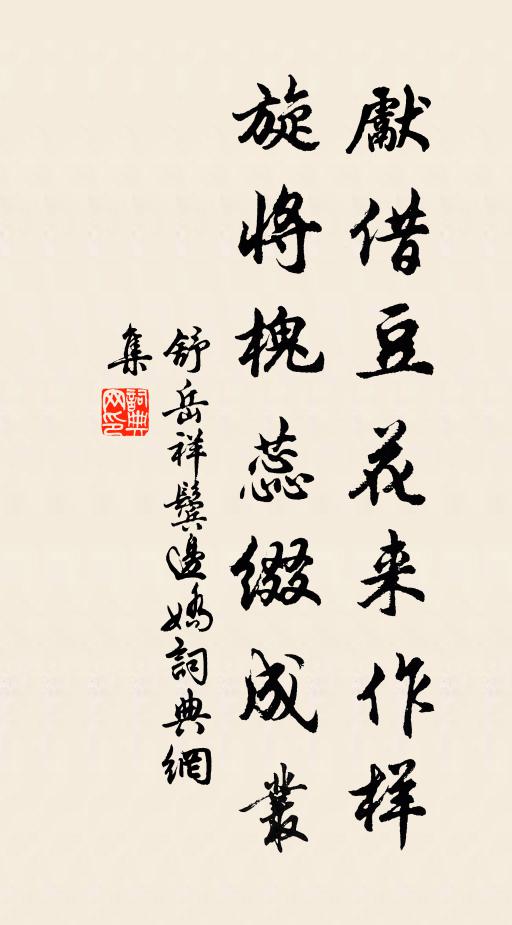 獻借豆花来作样
旋將槐蕊綴成叢
舒岳祥鬢邊嬌詞典網
集
詞典网印